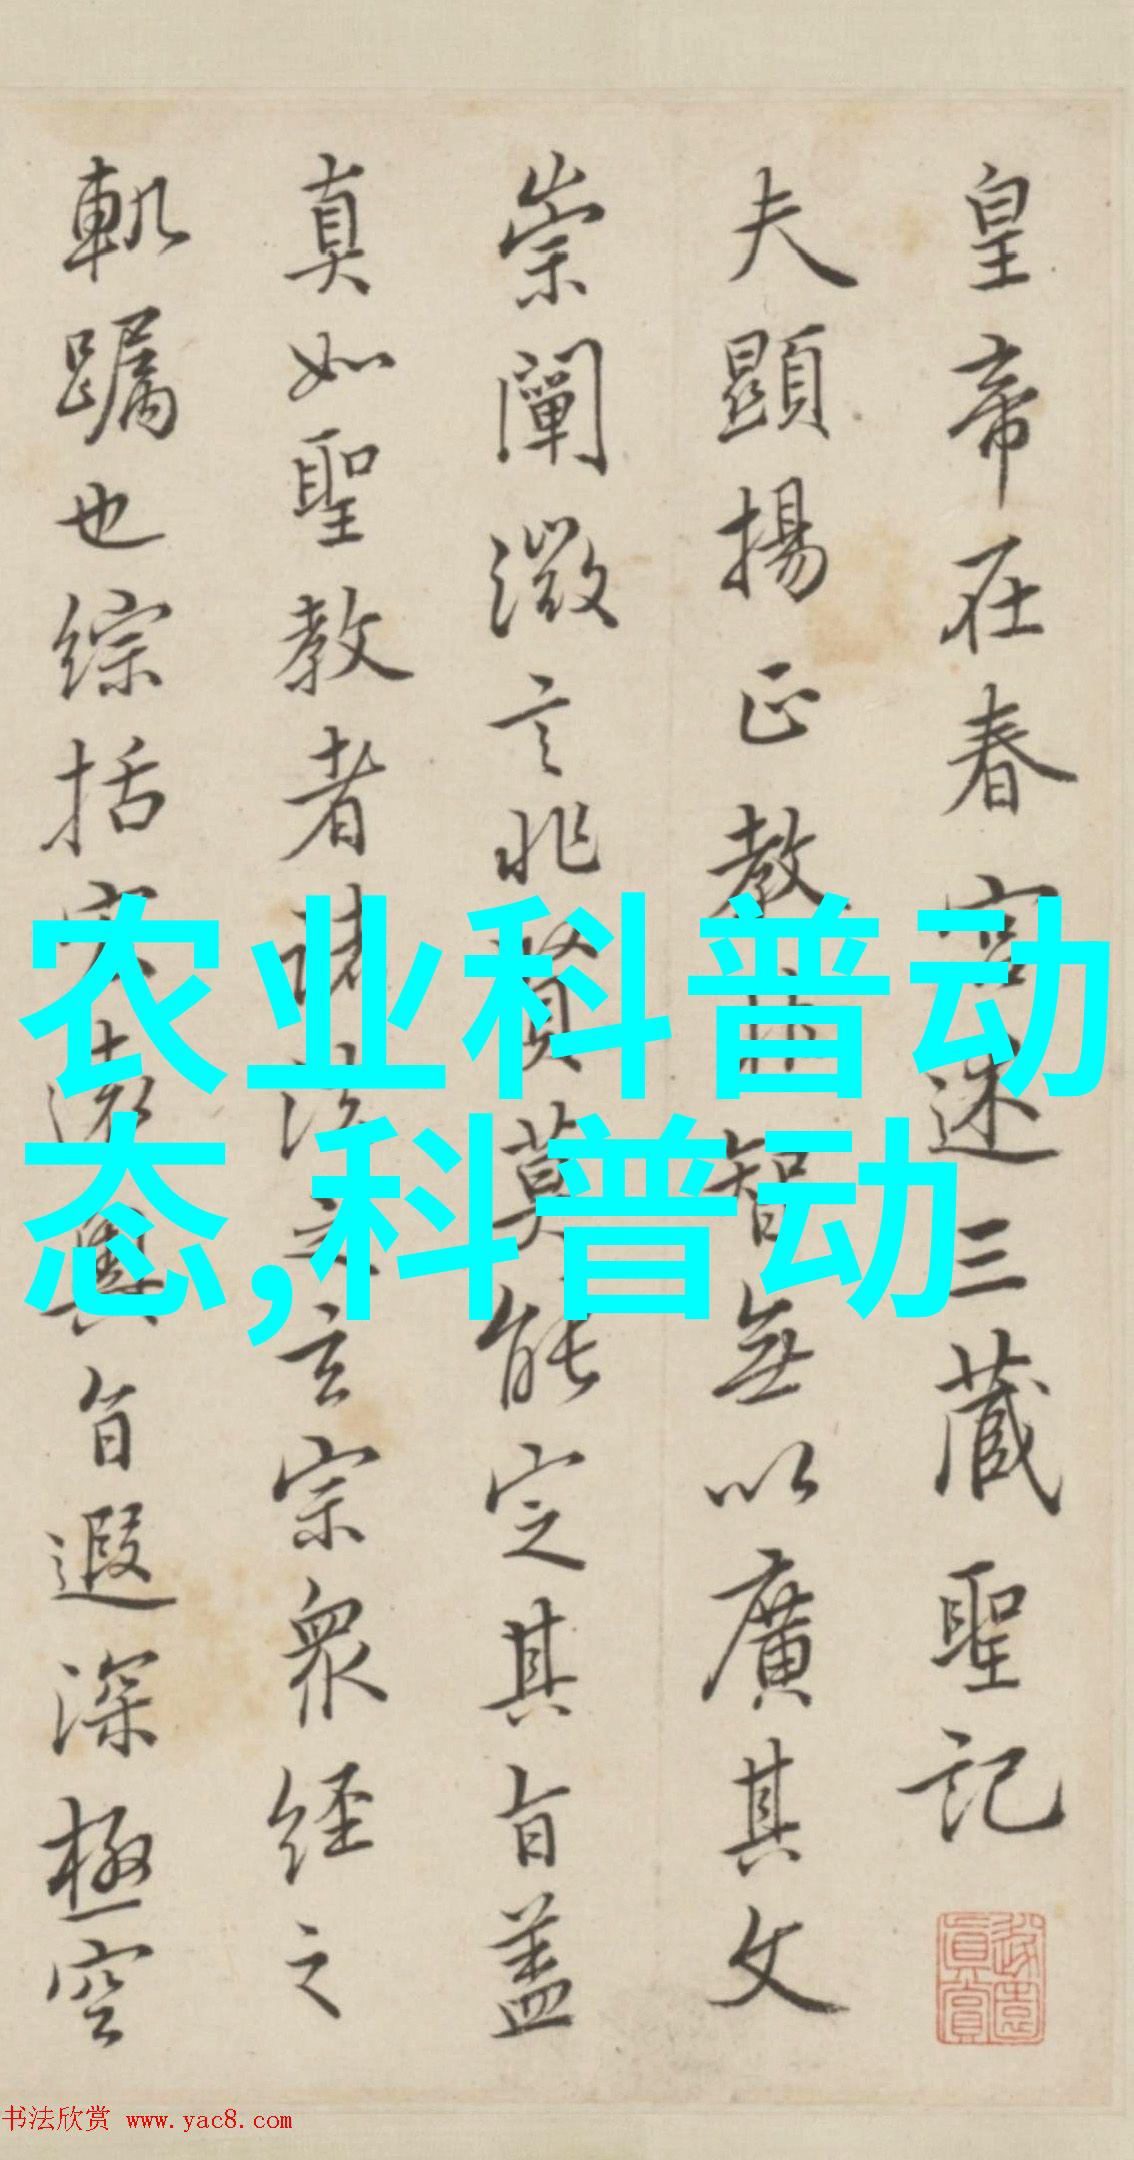 皇帝在春宮述三藏聖記
夫顯揚正教非智無以廣其文
崇闡微言非賢莫能定其旨蓋
真如聖教者諸法之玄宗衆經之
軌躅也綜括宏遠奧旨遐深極空
农业科普动
态,科普动
书法欣赏 www.yac8.com